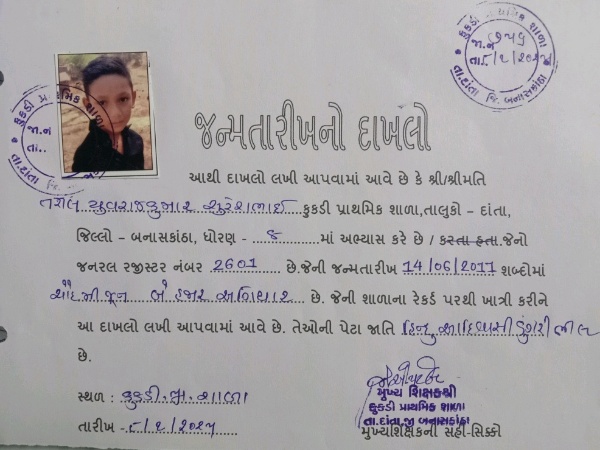 કુકડી પ્રાથમિક શાળા
જા.નં
તા. ૬/૨/૨૦૨૫
તા.દાંતા જિ. બનાસકાંઠા
જન્મતારીખનો દાખલો
આથી દાખલો લખી આપવામાં આવે છે કે શ્રી/શ્રીમતિ
યુવરાજકુમાર સુરેશભાઈ કુકડી પ્રાથમિક શાળા,તાલુકો – દાંતા,
જિલ્લો – બનાસકાંઠા, ધોરણ - ૭ માં અભ્યાસ કરે છે / કરતા હતા.જેનો
જનરલ રજીસ્ટર નંબર 2601 છે.જેની જન્મતારીખ 14/06/2011 શબ્દોમાં
ચૌદમી જૂન બે હજાર અગિયાર છે. જેની શાળાના રેકર્ડ પરથી ખાત્રી કરીને
આ દાખલો લખી આપવામાં આવે છે. તેઓની પેટા જાતિ હિન્દુ આદિવાસી ડુંગરી ભીલ
છે.
સ્થળ : કુકડી પ્રા. શાળા
તારીખ -
મુખ્ય શિક્ષકશ્રી
કુકડી પ્રાથમિક શાળા
તા.દાંતા,જી બનાસકાંઠા
મુખ્યશિક્ષકની સહી-સિક્કો